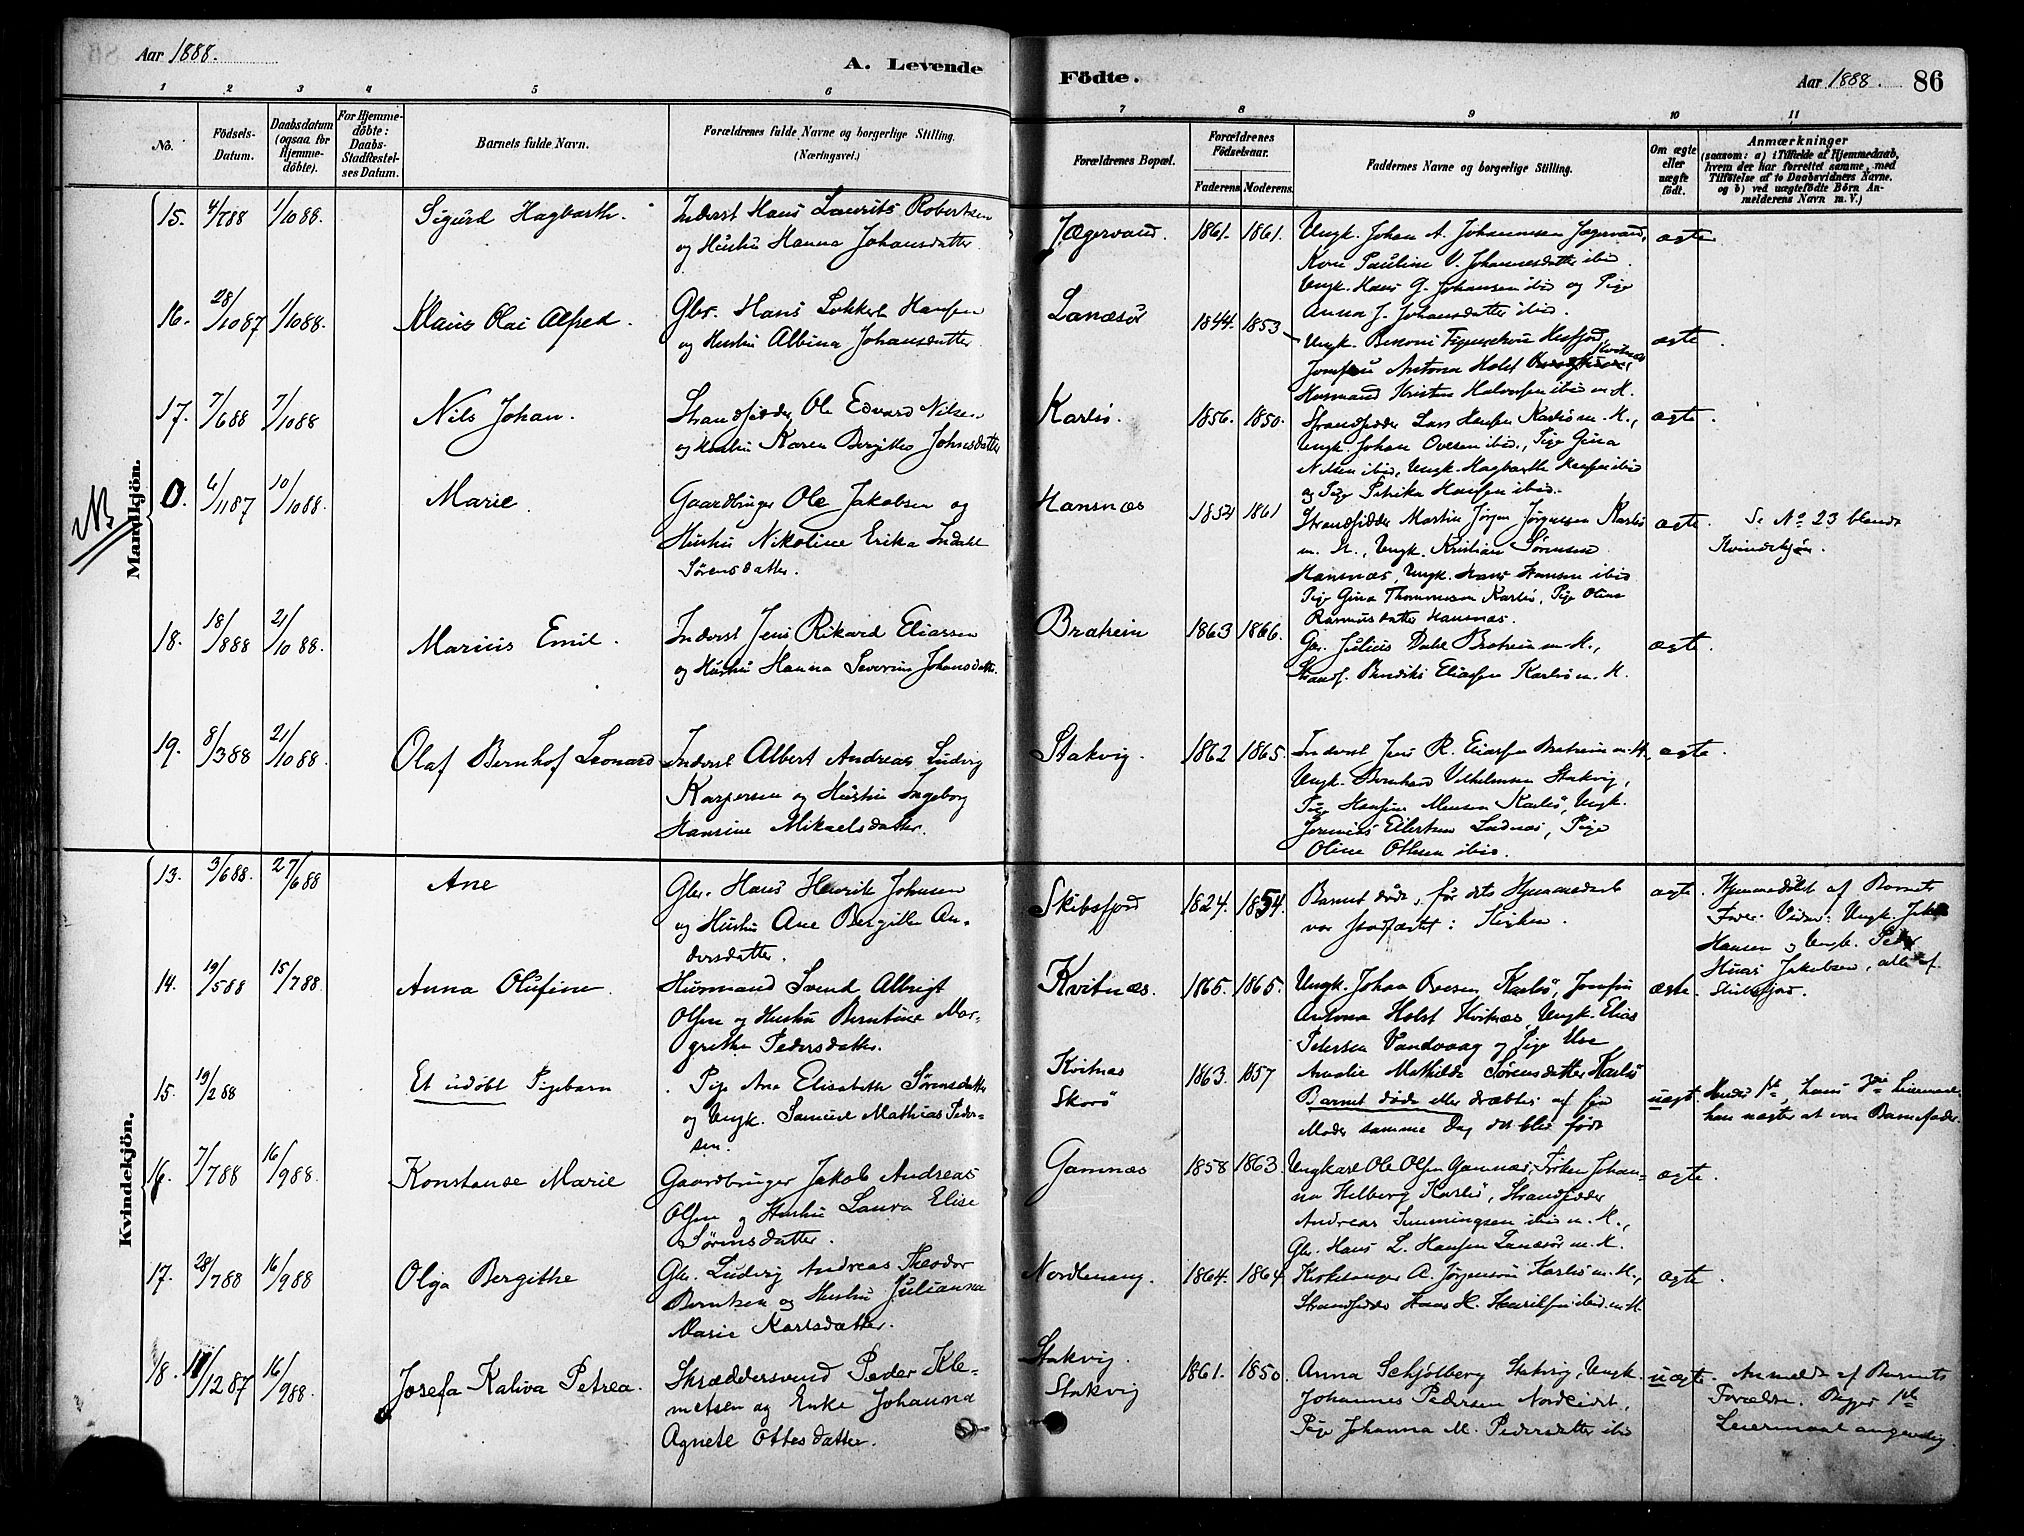 Aar 1888.
A. Levende
Födte.
Aar 1888. 86
1 2 3 4 5 6 7 8 9 10 11
No.
Födsels-
Datum.
Daabsdatum
(ogsaa for
Hjemme-
döbte).
For Hjemme-
döbte:
Daabs-
Stadfæstel-
ses Datum.
Barnets fulde Navn.
Forældrenes fulde Navne og borgerlige Stilling.
(Næringsvei.)
Forældrenes Bopæl.
Forældrenes
Födselsaar.
Faderens Moderens.
Faddernes Navne og borgerlige Stilling.
Om ægte
eller
uægte
födt.
Anmærkninger
(saasom: a) i Tilfælde af Hjemmedaab,
hvem der har forrettet samme, med
Tilföielse af to Daabsvidners Navne,
og b) ved uægtefödte Börn An-
melderens Navn m. V.)
NB
Mandkjön.
15. 4/788 1/1088. Sigurd Hagbarth.
Inderst Hans Laurits Robertsen
og Hustru Hanna Johansdatter
Jægervand. 1861. 1861.
Ungk. Johan A. Johannesen Jægervand,
Kone Pauline V. Johannesdatter ibid.
Ungk. Hans G. Johansen ibid og Pige
Anna J. Johansdatter ibid.
ægte
16. 28/1087 1/1088. Klaus Olai Alfred.
Gbr. Hans Lokkert Hansen
og Hustru Albina Johansdatter.
Lanæsör 1844. 1853
Ungk. Antona Holst
Husmand Kristen Halvorsen ibid m. H.
ægte.
17. 7/688 7/1088 Nils Johan.
Strandsidder Ole Edvard Nilsen
og Hustru Karen Bergitte Johnsdatter
Karlsö. 1856. 1850.
Strandsidder Lars Hansen Karlsö m. H.,
Ungk. Johan Ovesen ibid., Pige Gina
Nilsen ibid, Ungk. Hagbarth Hansen ibid
og Pige Petrika Hansen ibid.
ægte
0. 6/1187 10/1088. Marie
Gaardbruger Ole Jakobsen og
Hustru Nikoline Erika Indahl
Sørensdatter.
Hansnæs 1854 1861
Strandsidder Martin Jørgen Jørgensen Karlsö
m. H., Ungk. Kristian Sørensen
Hansnæs, Ungk. Hans Hansen ibid
Pige Gina Thommesen Karlsö, Pige Oline
Rasmusdatter Hansnæs.
ægte. Se No 23 blandt
Kvindekjøn.
18. 18/888 21/1088. Marius Emil.
Inderst Jens Rikard Eliassen
og Hustru Hanna Severine Johansdatter.
Bratrein 1863 1866.
Gbr. Julius Dahl Bratrein m. H.,
Strands. Bendiks Eliassen Karlsö m. H.
ægte.
19. 8/388 21/1088. Olaf Bernhof Leonard
Inderst Albert Andreas Ludvig
Kaspersen og Hustru Ingeborg
Hansine Mikaelsdatter.
Stakvig. 1862 1865.
Inderst Jens R. Eliassen Bratrein m. H.,
Ungk. Bernhard Vilhelmsen Stakvig,
Pige Hansine Monsen Karlsö, Ungk.
Jeremias Eilertsen Ladnæs, Pige
Oline Ottesen ibid.
ægte.
Kvindekjön.
13. 3/688. 27/688 Ane
Gbr. Hans Henrik Johnsen
og Hustru Ane Bergitte An-
dersdatter.
Skibsfjord 1824. 1854.
Barnet døde, før dets Hjemmedaab
var stadfæstet i Kirken.
ægte. Hjemmedøbt af Barnets
Fader. Vidner: Ungk. Jakob
Hansen og Ungk. Peder
Hans Jakobsen, alle af
Skibsfjord.
14. 19/588 15/788. Anna Olufine.
Husmand Svend Albrigt
Olsen og Hustru Berntine Mar-
grethe Pedersdatter.
Kvitnæs. 1865. 1865.
Ungk. Johan Ovesen Karlsö, Jomfru
Antona Holst Kvitnæs, Ungk. Elias
Petersen Vandvaag og Pige
ægte.
15. 19/288 Et udøbt Pigebarn
Pige Ane Elisabeth Sørensdatter
og Ungk. Samuel Mathias Peder-
sen.
Kvitnæs
Skorø
1863. 1857
Amalie Mathilde Sørensdatter Karlsö
Barnet døde eller dræbtes af sin
Moder samme Dag det blev født
uægt. Hendes 1ste, hans 3die Leiermaal
han nægter at være Barnefader.
16. 7/788 16/988. Konstanse Marie
Gaardbruger Jakob Andreas
Olsen og Hustru Laura Elise
Sørensdatter.
Gamnæs 1858 1863.
Ungkarl Ole Olsen Gamnæs, Frøken Johan-
na Helberg Karlsö, Strandsidder
Andreas Simmingsen ibid m. H.,
Gbr. Hans L. Hansen Lanæsör m. H.
ægte.
17. 28/788 16/988 Olga Bergithe
Gbr. Ludvig Andreas Theodor
Berntsen og Hustru Julianna
Marie Karlsdatter.
Nordlenang. 1864. 1864
Kirkesanger A. Jørgensen Karlsö m. H.,
Strandsidder Hans H. ibid. m. H
ægte.
18. 11/1287 16/988. Josefa Kaliva Petrea.
Skræddersvend Peder Kle-
metsen og Enke Johanna
Agnete Ottesdatter.
Stakvig.
Stakvig
1861. 1850.
Anna Schjølberg Stakvig, Ungk.
Johannes Pedersen Nordeidet,
Pige Johanna M. Pedersdatter ibid
uægte. Anmeldt af Barnets
Forældre. Begges 1ste
Leiermaal angivelig.